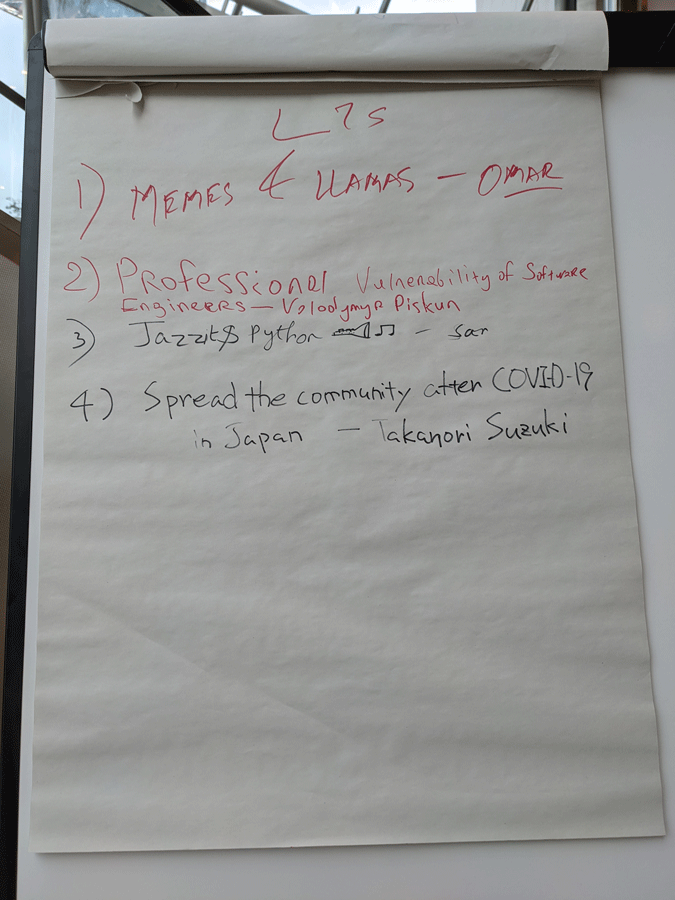 L7s
1) MEMES & LLAMAS - OMAR
2) Professional Vulnerability of Software
Engineers - Volodymyr Piskun
3) Python - Sar
4) Spread the community after COVID-19
in Japan - Takanori Suzuki